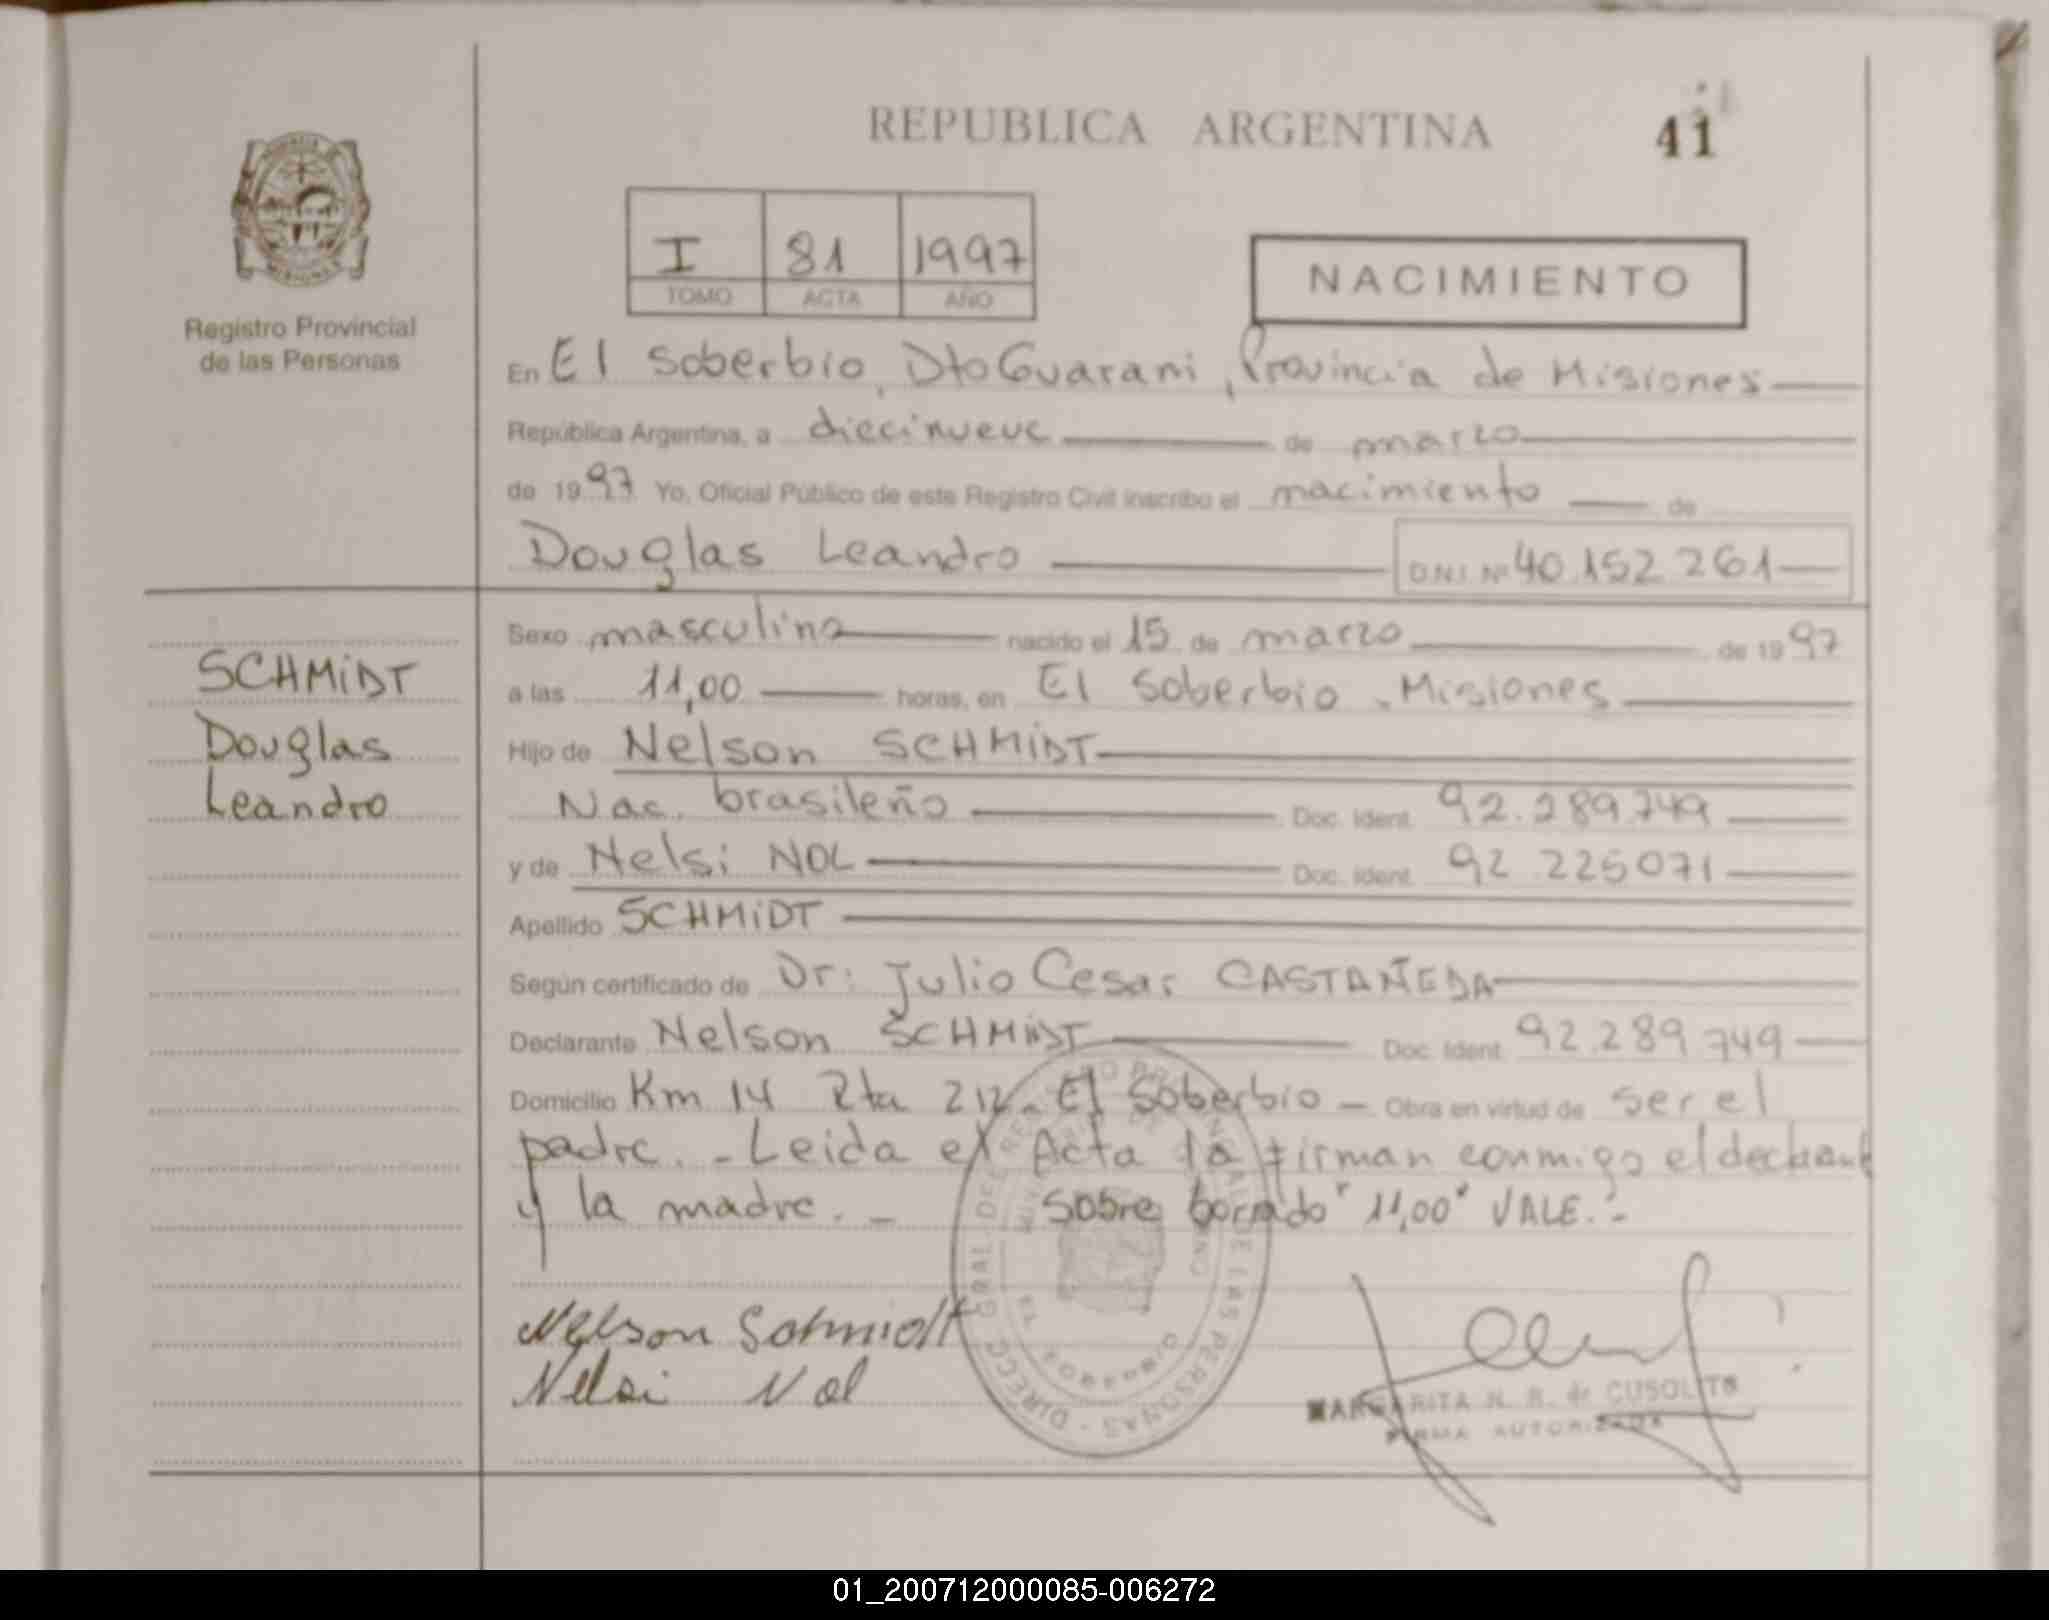 REPUBLICA ARGENTINA
41
Registro Provincial
de las Personas
I 81 1997
TOMO ACTA AÑO
NACIMIENTO
En El Soberbio, Dto Guarani, Provincia de Misiones
República Argentina, a diecinueve de marzo
de 1997 Yo, Oficial Público de este Registro Civil inscribo el nacimiento de
Douglas Leandro D.N.I. Nº 40.152.261
Sexo masculino nacido el 15 de marzo de 1997
SCHMiDT
a las 11,00 horas, en El Soberbio - Misiones
Douglas
Hijo de Nelson SCHMiDT
Leandro
Nac. brasileño Doc. Ident. 92.289.749
y de Nelsi NOL Doc. Ident. 92.225071
Apellido SCHMiDT
Según certificado de Dr: Julio Cesar CASTAÑEDA
Declarante Nelson SCHMiDT Doc. Ident. 92.289.749
Domicilio Km 14 Rta 212 - El Soberbio - Obra en virtud de ser el
padre. - Leida el Acta la firman conmigo el declarant
y la madre. - Sobre borrado "11,00" VALE. -
Nelson Schmidt
Nelsi Nol
DIRECC. GRAL. DEL REGISTRO PROVINCIAL DE LAS PERSONAS
EL SOBERBIO
MARGARITA N. R. de CUSOLITO
FIRMA AUTORIZADA
01_200712000085-006272